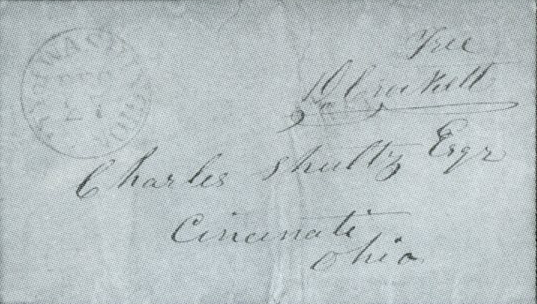 WASHINGTON
DEC
27
Free
D. Crockett
Charles Shultz Esqr
Cincinati
Ohio